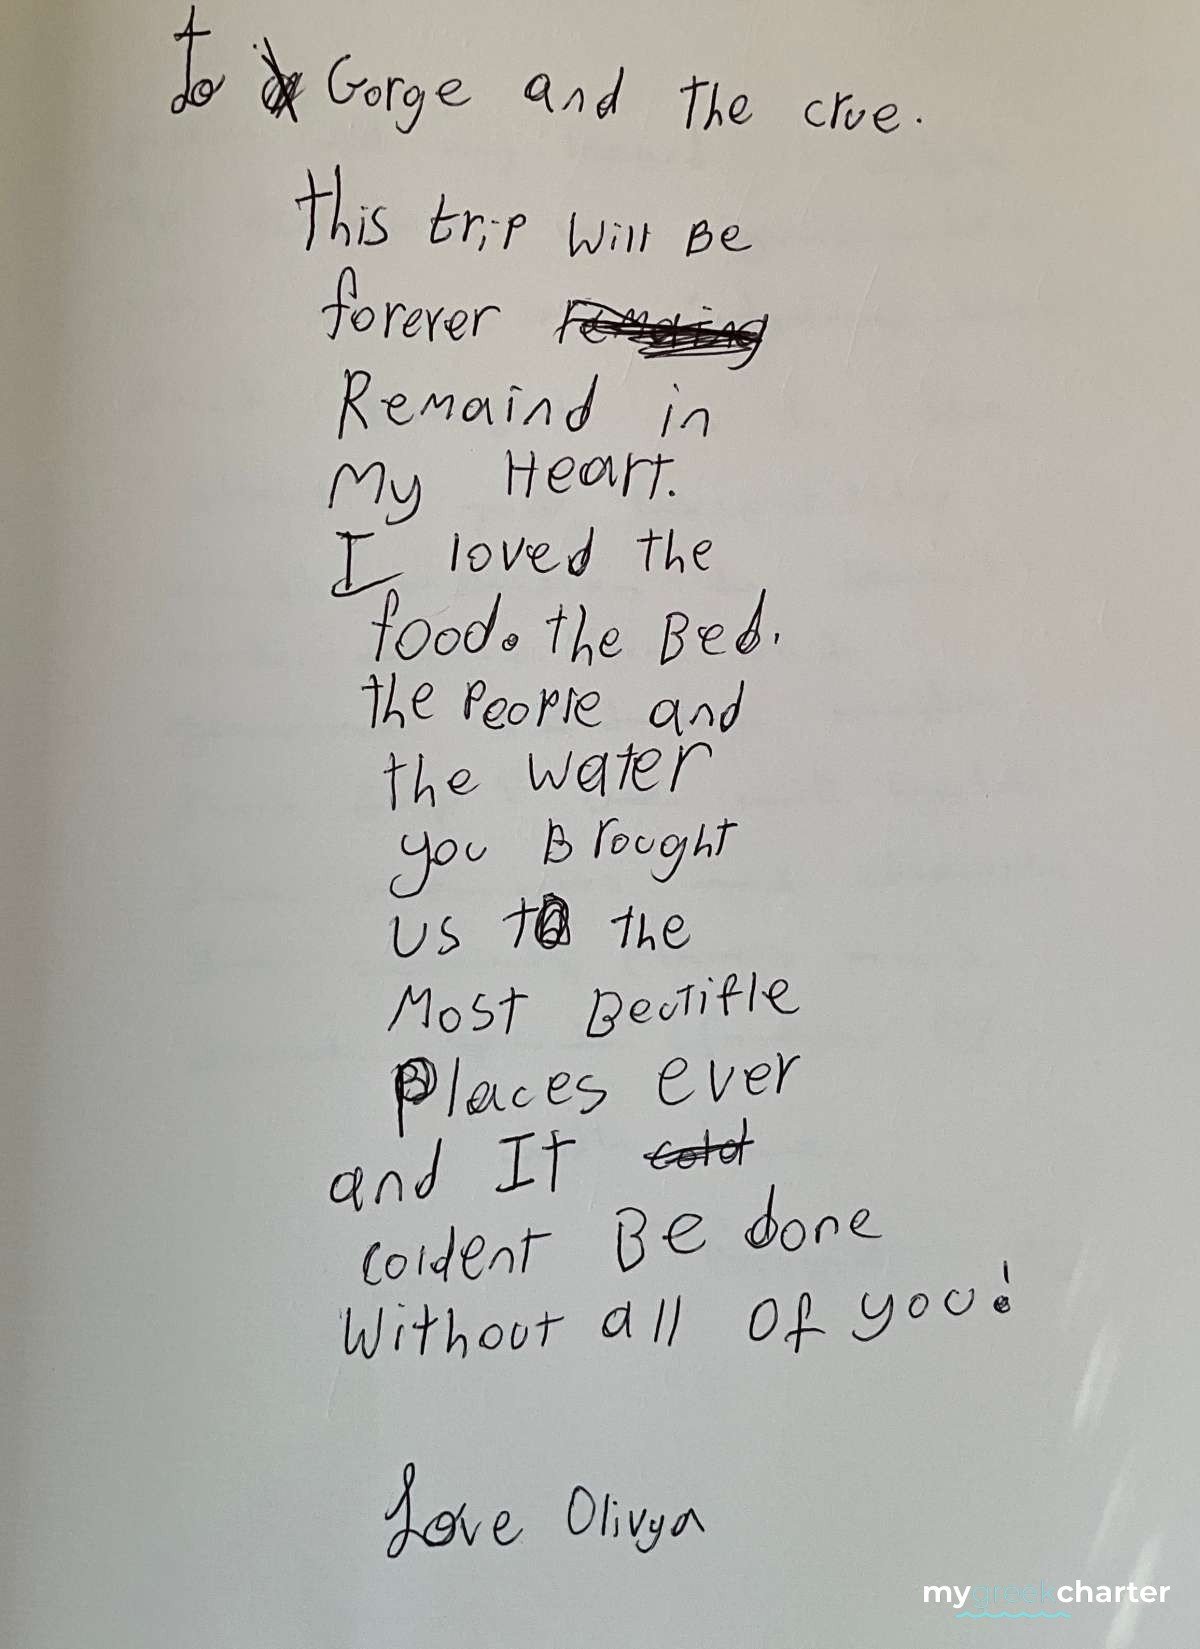 To Gorge and the crue.
This trip will Be
forever remaing
Remaind in
My Heart.
I loved the
food. the Bed.
the People and
the water
you Brought
us to the
Most Beutifle
Places ever
and It cold
coldent Be done
Without all of you!
Love Olivya
mygreekcharter